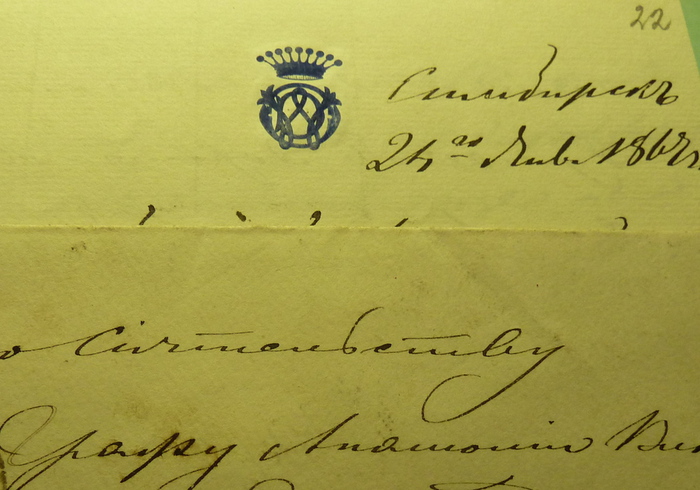 22
Симбирскъ
24го Янв. 186
Сіятельству
Графу Анатолію